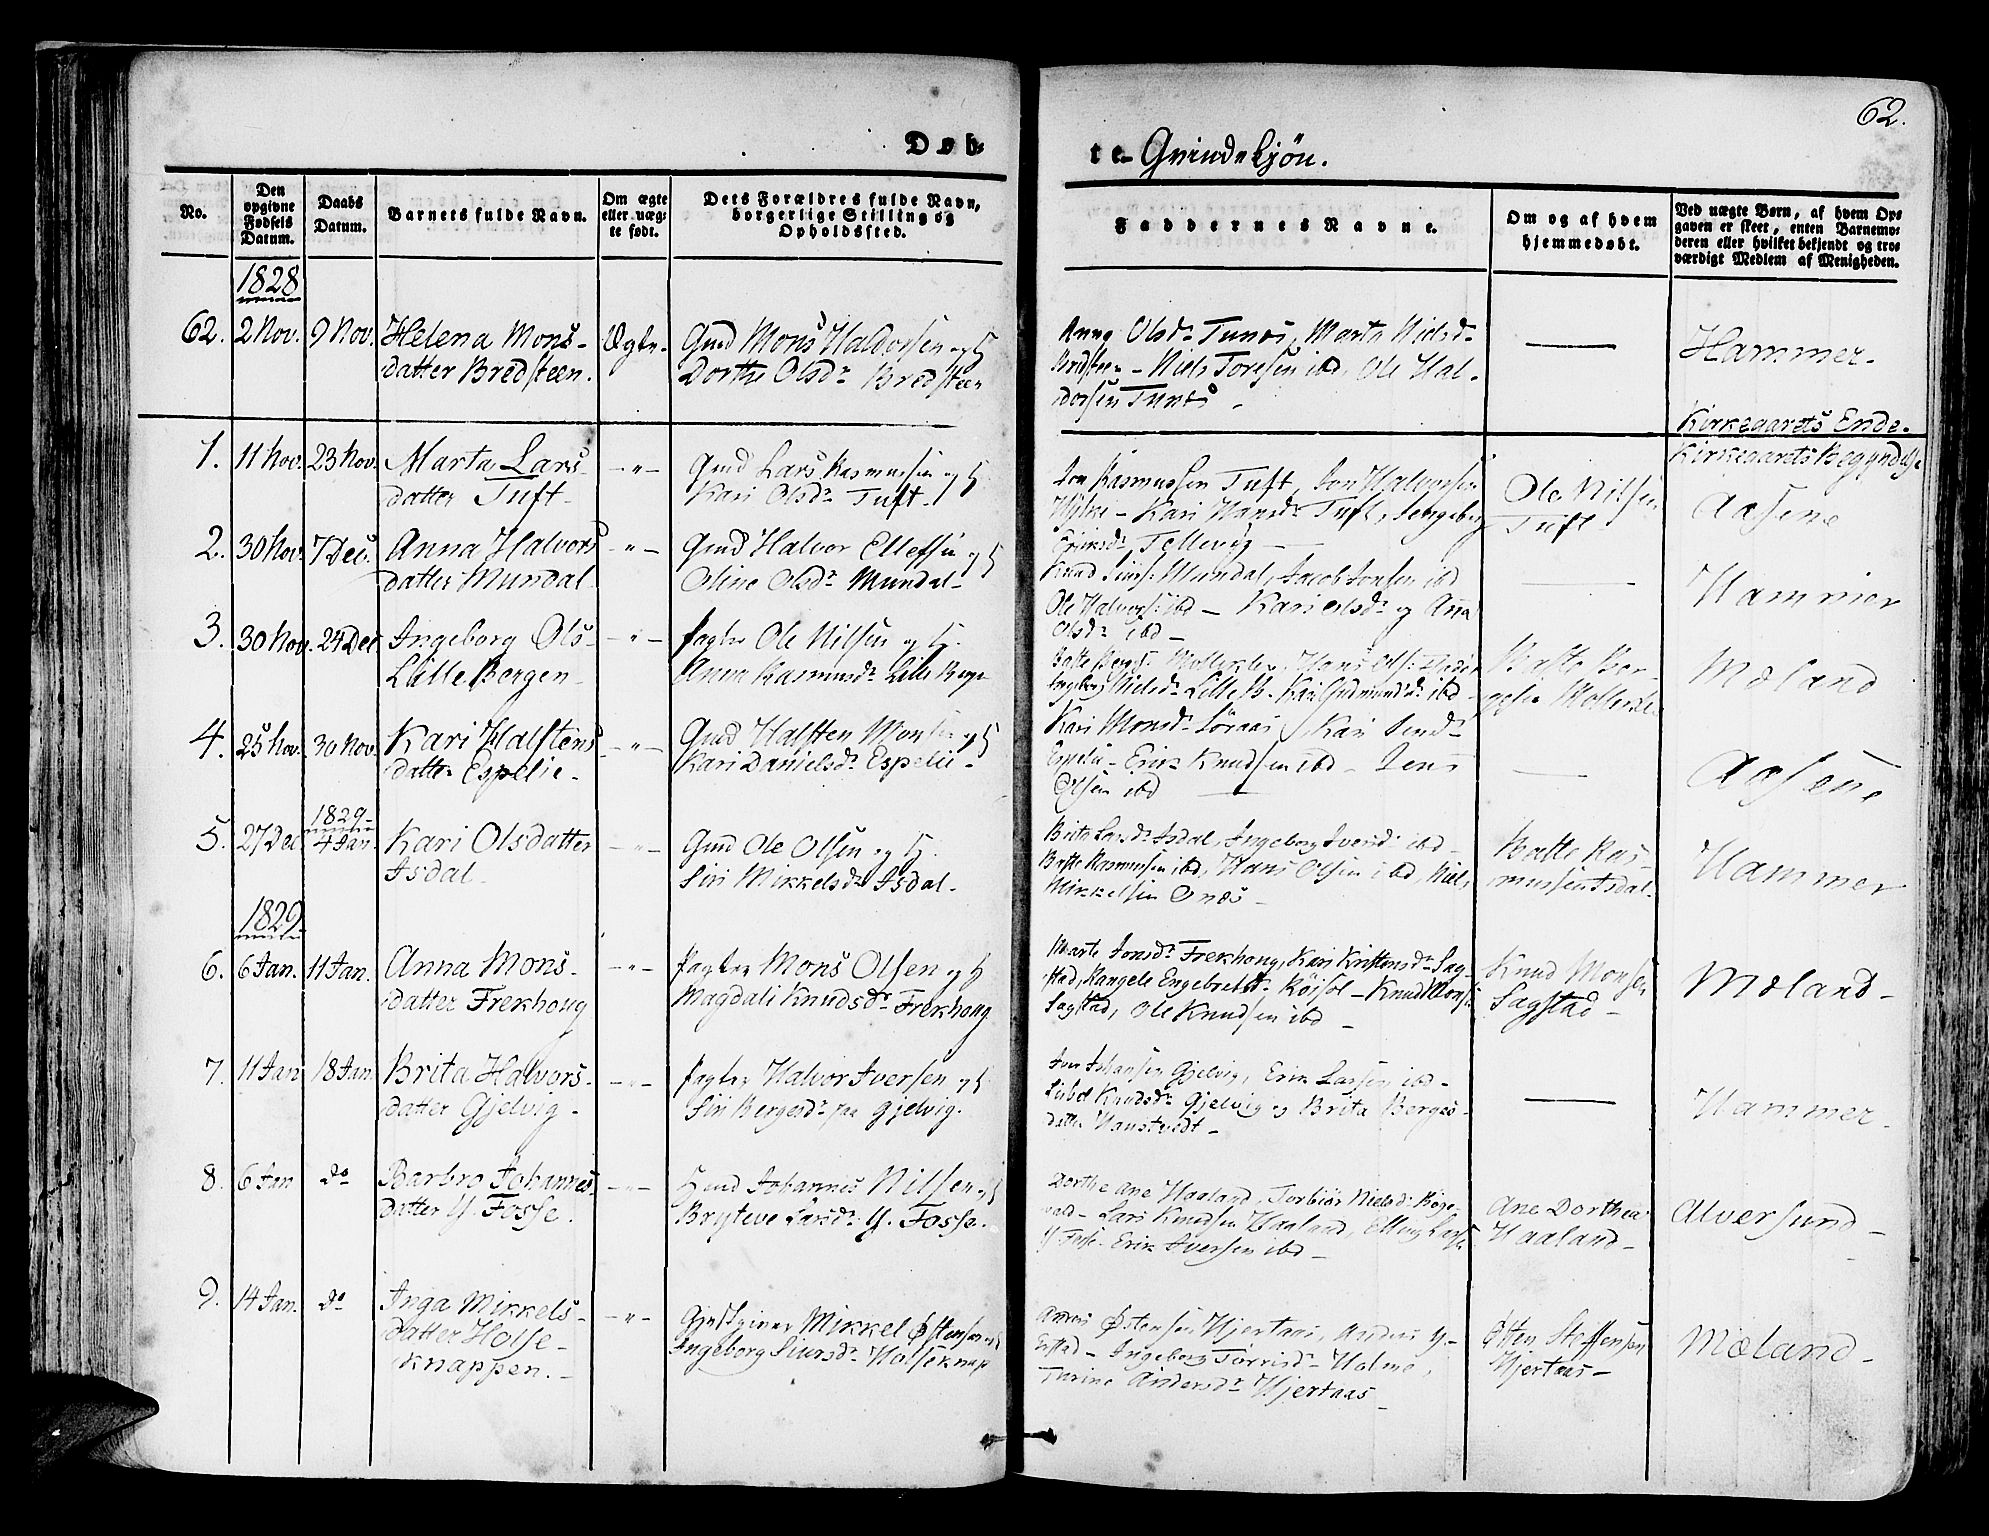 62.
Døb-
te Qvindekjøn.
No.
Den opgivne Fødsels Datum.
Daabs Datum.
Barnets fulde Navn.
Om ægte eller uægte født.
Dets Forældres fulde Navn, borgerlige Stilling og Opholdssted.
Faddernes Navne.
Om og af hvem hjemmedøbt.
Ved uægte Børn, af hvem Opgaven er skeet, enten Barnemoderen eller hvilket bekjendt og troværdigt Medlem af Menigheden.
1828
62. 2 Nov. 9 Nov. Helena Mons-
datter Bredsteen.
Ægte
Gmd Mons Haldorsen og H
Dorthe Olsdr Bredsteen
Anna Olsdr Tunes, Marta Nielsdr
Bredsteen - Niels Toresen ibd, Ole Hal-
dorsen Tunes -
—
Hammer -
Kirkeaarets Ende.
Kirkeaarets Begyndelse
1. 11 Nov. 23 Nov. Marta Lars-
datter Tuft -
- " -
Gmd Lars Rasmussen og H
Kari Olsdr Tuft -
Jon Rasmussen Tuft, Jon Halvorsen
Hylke - Kari Hansdr Tuft, Ingeborg
Eriksdr Tellevig -
Ole Nilsen
Tuft
Aasene
2. 30 Nov. 7 Dec. Anna Halvors
datter Mundal
- " -
Gmd Halvor Ellefsen og H
Oline Olsdr Mundal -
Knud Siurs: Mundal, Jacob Jonsen ibd
Ole Halvors: ibd - Kari Olsdr og Anna
Olsdr ibd -
—
Hammer
3. 30 Nov. 24 Dec Ingeborg Ols-
Lille Bergen
- " -
fagter Ole Nilsen og H.
Anna Rasmusdr Lille Berge
Ingeborg Nielsdr Lille B. Kari Gudmundsdr ibd -
Baste Ber-
Mæland
4. 25 Nov. 30 Nov. Kari Halstens
datter Espelie -
- " -
Gmd Halsten Monsen og H
Kari Danielsdr Espelie -
Kari Monsdr Søraas, Kari
Espelie - Erik Knudsen ibd - Jens
Olsen ibd —
—
Aasene
1829
5. 27 Dec 4 Jan. Kari Olsdatter
Isdal -
- " -
Gmd Ole Olsen og H.
Siri Mikkelsdr Isdal -
Brita Larsdr Isdal, Ingeborg Iversdr ibd -
Baste Rasmussen ibd, Hans Olsen ibd, Niels
Mikkelsen Onæs -
Baste Ras-
mussen Isdal.
Hammer
1829
6. 6 Jan. 11 Jan. Anna Mons-
datter Frekhoug
- " -
fagter Mons Olsen og H
Magdali Knudsdr Frekhoug
Marte Jonsdr Frekhoug, Kari Kristensdr Sag-
stad, Rangele Engebretsdr Røisøl - Knud Mons:
Sagstad, Ole Knudsen ibd -
Knud Monsen
Sagstad -
Mæland -
7. 11 Jan 18 Jan. Brita Halvors-
datter Gjelvig -
- " -
fagter Halvor Iversen og H
Siri Bergesdr paa Gjelvig.
Iver Johansen Gjelvig, Erik Larsen ibd -
Sibel Knudsdr Gjelvig og Brita Berges-
datter Hanstvedt -
—
Hammer -
8. 6 Jan do Barbro Johannes-
datter Y. Fosse.
- " -
Hmd Johannes Nilsen og H
Bryteve Larsdr Y. Fosse.
Dorthe Ane Haaland, Torbiør Nielsdr Røge-
- Lars Knudsen Haaland, Elling Larsen
Y Fosse. Erik Iversen ibd -
Ane Dorthea
Haaland -
Alversund -
9. 14 Jan. do Inga Mikkels-
datter Holse-
knappen. -
- " -
Gjestgiver Mikkel Østensen og H
Ingeborg Siursdr Holseknap
Anders Østensen Hjertaas, Anders Y-
- Ingeborg Torrisdr Holme,
Turine Andersdr Hjertaas -
Østen Steffensen
Hjertaas -
Mæland -